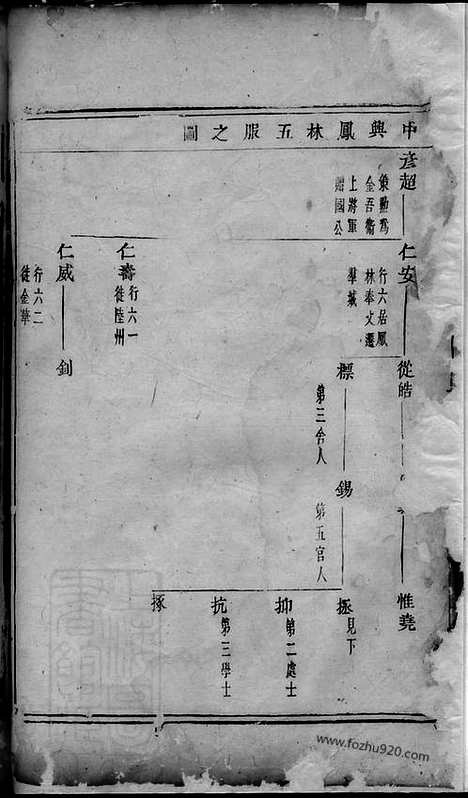 中興鳳林五服之圖
彥超
策勳爲
金吾衛
上將軍
贈國公
仁安
行六居鳳
林奉父遷
羣城
仁壽
行六一
徙陸州
仁威
行六二
徙金華
釗
從皓
標
第三舍人
錫
第五官人
惟堯
拯
見下
抑
第二處士
抗
第三學士
琢
www.fozhu920.com